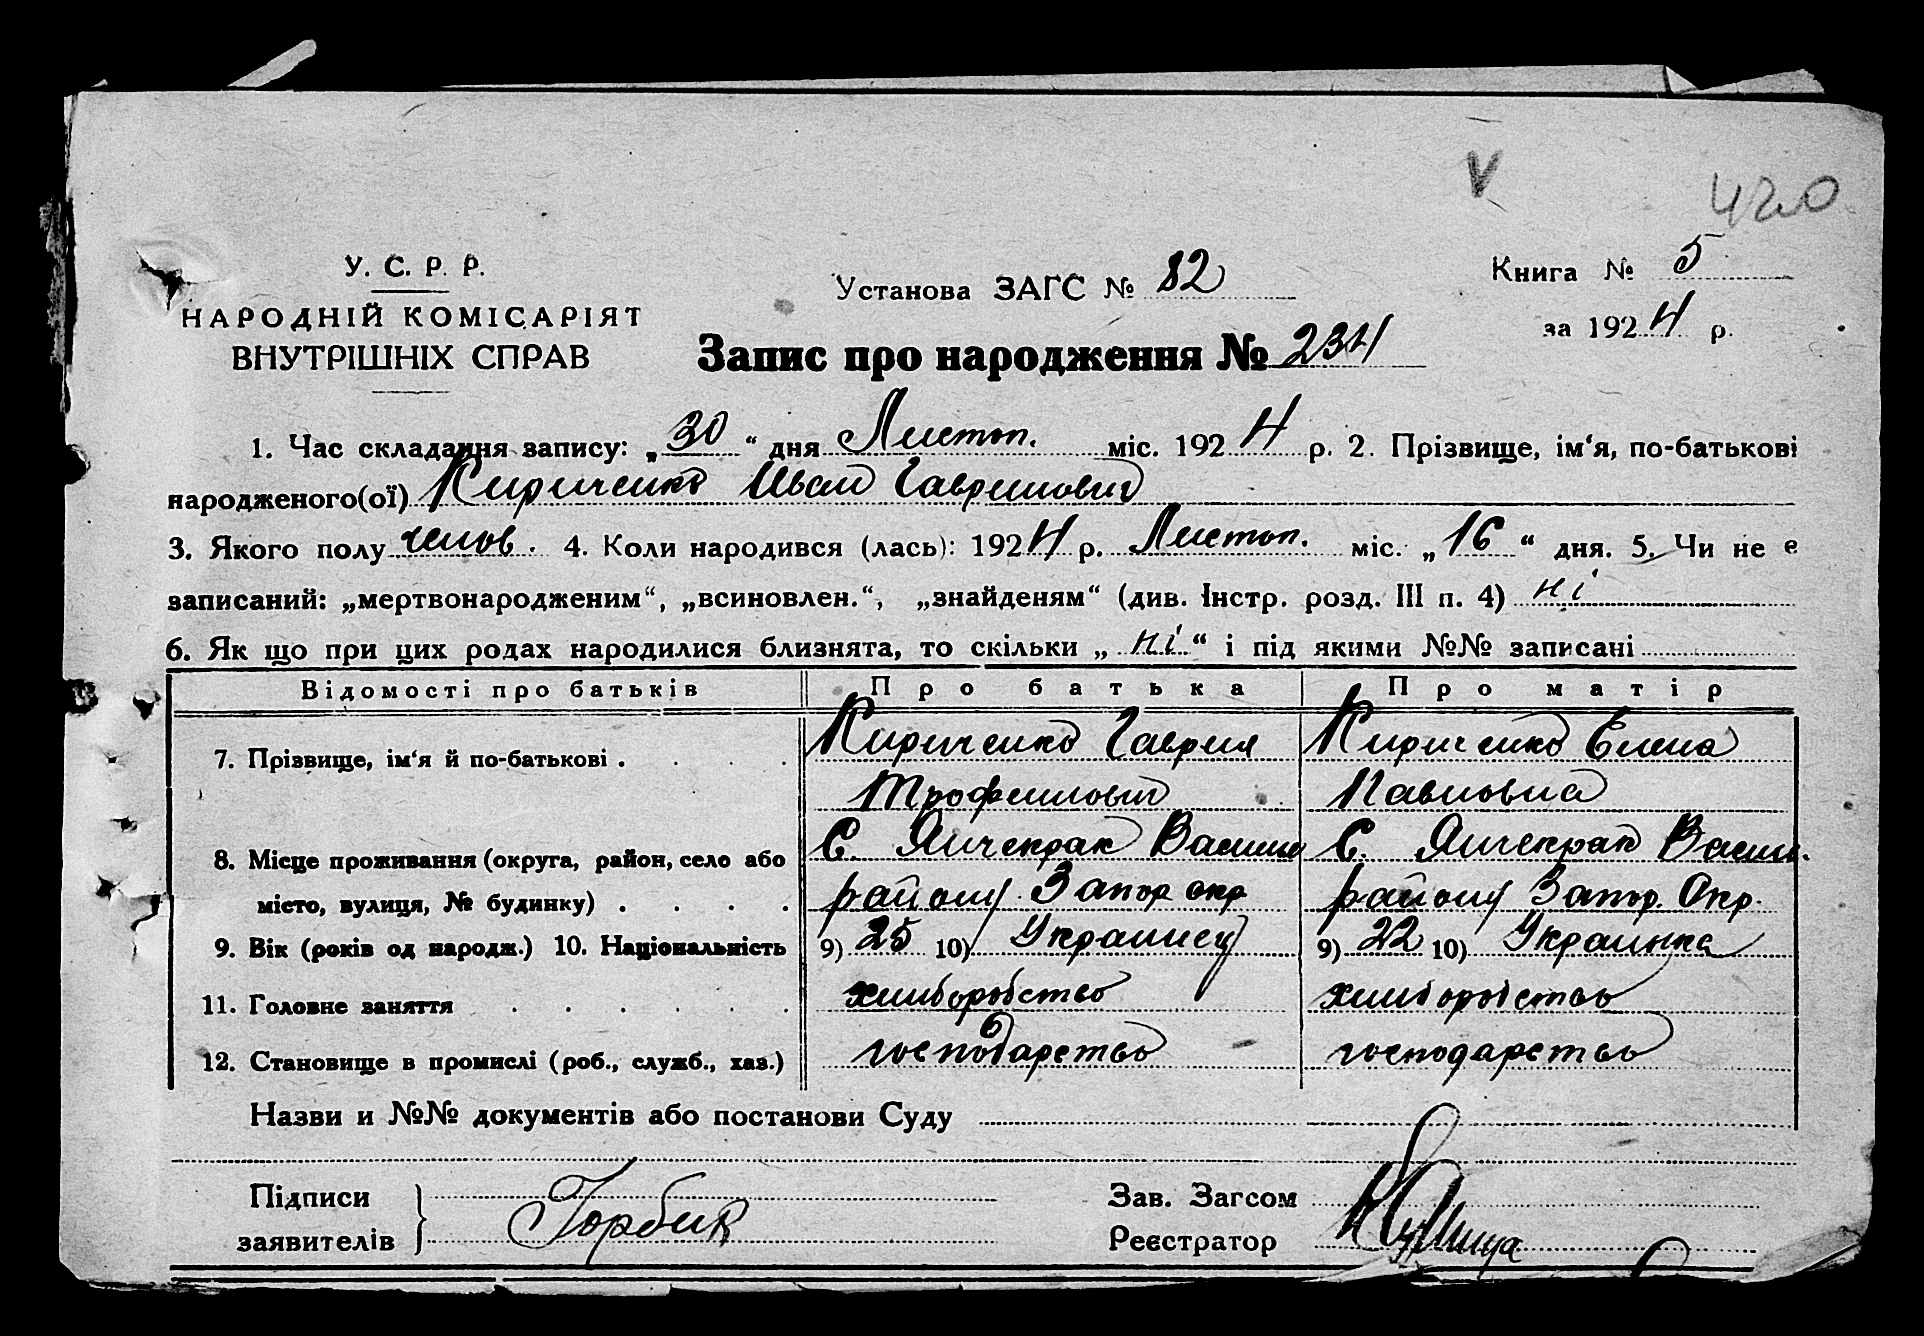 V
420
У. С. Р. Р.
НАРОДНІЙ КОМІСАРІЯТ
ВНУТРІШНІХ СПРАВ
Установа ЗАГС № 82
Книга № 5
за 1924 р.
Запис про народження № 234
1. Час складання запису: „30“ дня Листоп. міс. 1924 р. 2. Прізвище, ім‘я, по-батькові
народженого(ої) Кириченко Иван Гаврилович
3. Якого полу челов. 4. Коли народився (лась): 1924 р. Листоп. міс. „16“ дня. 5. Чи не е
записаний: „мертвонародженим“, „всиновлен.“, „знайденям“ (див. Інстр. розд. III п. 4) ні
6. Як що при цих родах народилися близнята, то скільки „ні“ і під якими №№ записані
Відомості про батьків Про батька Про матір
7. Прізвище, ім‘я й по-батькові . . . . Кириченко Гаврил Кириченко Елена
Трофимович Павловна
8. Місце проживання (округа, район, село або С. Янчекрак Васили С. Янчекрак Васил.
місто, вулиця, № будинку) . . . . району Запор окр району Запор. Окр.
9. Вік (років од народж.) 10. Національність 9) 25 10) Украинец 9) 22 10) Украинка
11. Головне заняття . . . . . . хлиборобство хлиборобство
12. Становище в промислі (роб., служб., хаз.) господарство господарство
Назви и №№ документів або постанови Суду
Підписи
заявителів } Горбик
Зав. Загсом
Реєстратор